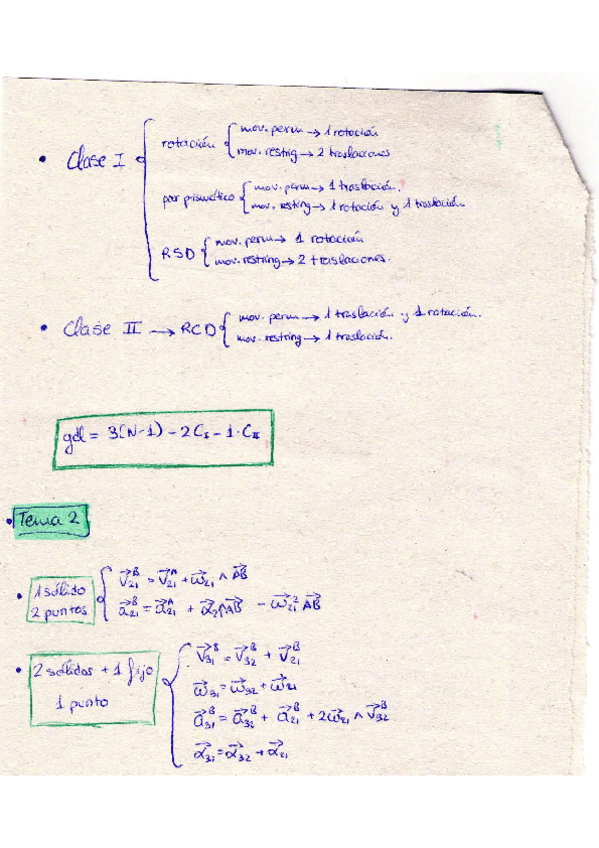 • Clase I
rotación
mov. perm → 1 rotación
mov. restrig → 2 traslaciones
par prismático
mov. perm → 1 traslación.
mov. resting → 1 rotación y 1 traslación
RSD
mov. perm → 1 rotación
mov. restring → 2 traslaciones.
• Clase II → RCD
mov. perm → 1 traslación y 1 rotación.
mov. restring → 1 traslación.
gdl = 3(N-1) - 2C_I - 1·C_II
• Tema 2
• 1 sólido
2 puntos
v⃗₂₁ᴮ = v⃗₂₁ᴬ + ω⃗₂₁ ∧ AB⃗
a⃗₂₁ᴮ = a⃗₂₁ᴬ + α⃗₂∧AB⃗ - ω⃗₂₁² AB⃗
• 2 sólidos + 1 fijo
1 punto
v⃗₃₁ᴮ = v⃗₃₂ᴮ + v⃗₂₁ᴮ
ω⃗₃₁ = ω⃗₃₂ + ω⃗₂₁
a⃗₃₁ᴮ = a⃗₃₂ᴮ + a⃗₂₁ᴮ + 2ω⃗₂₁ ∧ v⃗₃₂ᴮ
α⃗₃₁ = α⃗₃₂ + α⃗₂₁